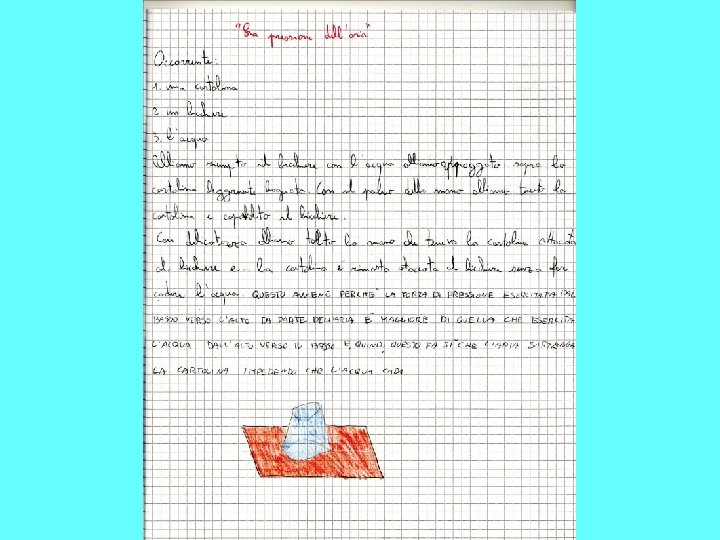 "La pressione dell'aria"
Occorrente:
1. una cartolina
2. un bicchiere
3. l'acqua
Abbiamo riempito il bicchiere con l'acqua abbiamo appoggiato sopra la
cartolina leggermente bagnata. Con il palmo della mano abbiamo tenuto la
cartolina e capovolto il bicchiere.
Con delicatezza abbiamo tolto la mano che teneva la cartolina attaccata
al bicchiere e... la cartolina è rimasta attaccata al bicchiere senza far
cadere l'acqua. QUESTO AVVIENE PERCHÈ LA FORZA DI PRESSIONE ESERCITATA DAL
BASSO VERSO L'ALTO DA PARTE DELL'ARIA È MAGGIORE DI QUELLA CHE ESERCITA
L'ACQUA DALL'ALTO VERSO IL BASSO E, QUINDI, QUESTO FA SÌ CHE L'ARIA SOSTENGA
LA CARTOLINA IMPEDENDO CHE L'ACQUA CADA